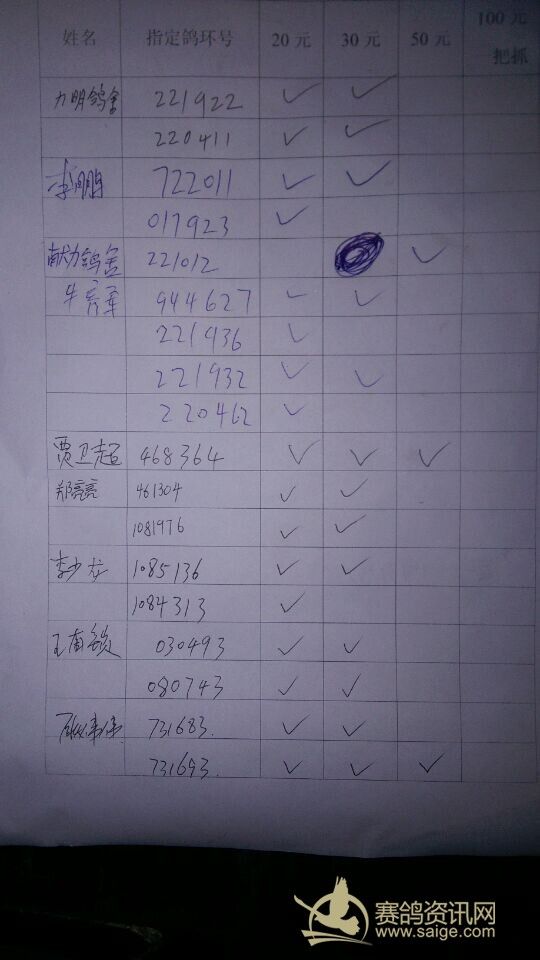 姓名 指定鸽环号 20元 30元 50元 100元
把抓
力明鸽舍 221922 ✓ ✓
220411 ✓ ✓
李鹏 722011 ✓ ✓
017923 ✓
献力鸽舍 221012 ✓
牛 944627 ✓ ✓
221936 ✓
221932 ✓ ✓
220462 ✓
贾卫超 468364 ✓ ✓ ✓
郑亮亮 461304 ✓ ✓
1081976 ✓ ✓
李少龙 1085136 ✓ ✓
1084313 ✓
王 030493 ✓ ✓
080743 ✓ ✓
731683. ✓ ✓
731693. ✓ ✓ ✓
赛鸽资讯网
www.saige.com